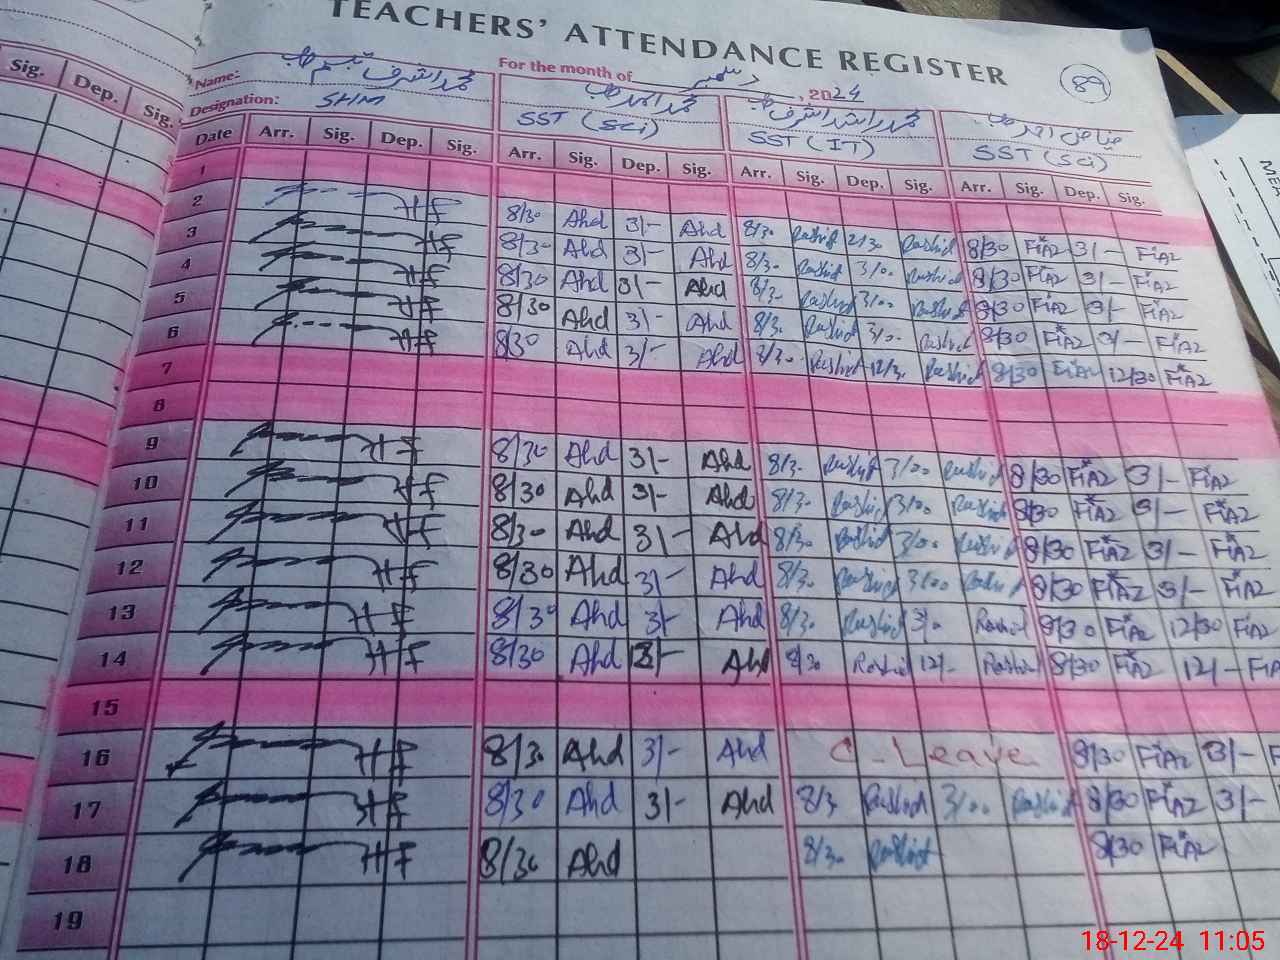 TEACHERS' ATTENDANCE REGISTER
89
Name: محمد اشرف تبسم صاحب For the month of دسمبر, 2024
Designation: SHM SST (Sci) محمد راشد اشرف SST (IT) SST (Sci)
Sig. Dep. Sig.
Date Arr. Sig. Dep. Sig. Arr. Sig. Dep. Sig. Arr. Sig. Dep. Sig. Arr. Sig. Dep. Sig.
1
2 8/30 Ahd 3/- Ahd 8/3. Rashid 2/30 Rashid 8/30 FiAz 3/- FiAz
3 8/30 Ahd 3/- Ahd 8/3. Rashid 3/00 Rashid 8/30 FiAz 3/- FiAz
4 8/30 Ahd 3/- Ahd 8/3. Rashid 3/00 Rashid 8/30 FiAz 3/- FiAz
5 8/30 Ahd 3/- Ahd 8/3. Rashid 3/0. Rashid 8/30 FiAz 3/- FiAz
6 8/30 Ahd 3/- Ahd 8/3. Rashid 12/3. Rashid 8/30 FiAz 12/30 FiAz
7
8
9 8/30 Ahd 3/- Ahd 8/3. Rashid 3/00 Rashid 8/30 FiAz 3/- FiAz
10 8/30 Ahd 3/- Ahd 8/3. Rashid 3/00 Rashid 8/30 FiAz 3/- FiAz
11 8/30 Ahd 3/- Ahd 8/3. Rashid 3/00 Rashid 8/30 FiAz 3/- FiAz
12 8/30 Ahd 3/- Ahd 8/3. Rashid 3/00 Rashid 8/30 FiAz 3/- FiAz
13 8/30 Ahd 3/- Ahd 8/3. Rashid 3/. Rashid 8/30 FiAz 12/30 FiAz
14 8/30 Ahd Ahd 8/30 Rashid 12/- Rashid 8/30 FiAz 12/-
15
16 8/30 Ahd 3/- Ahd C - Leave 8/30 FiAz 3/-
17 8/30 Ahd 3/- Ahd 8/3. Rashid 3/00 Rashid 8/30 FiAz 3/-
18 8/30 Ahd 8/3. Rashid 8/30 FiAz
19
18-12-24 11:05